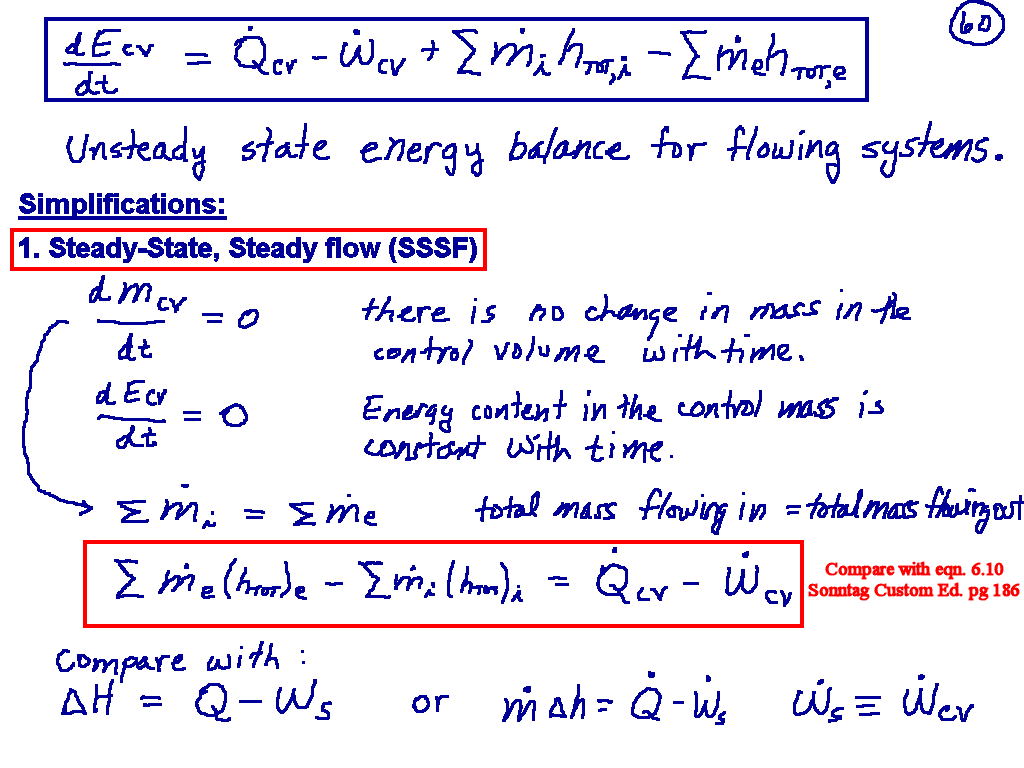 60
dE_cv/dt = Q̇_cv - Ẇ_cv + Σ ṁ_i h_TOT,i - Σ ṁ_e h_TOT,e
Unsteady state energy balance for flowing systems.
Simplifications:
1. Steady-State, Steady flow (SSSF)
dm_cv/dt = 0 there is no change in mass in the
control volume with time.
dE_cv/dt = 0 Energy content in the control mass is
constant with time.
Σ ṁ_i = Σ ṁ_e total mass flowing in = total mass flowing out
Σ ṁ_e (h_TOT)_e - Σ ṁ_i (h_TOT)_i = Q̇_cv - Ẇ_cv
Compare with eqn. 6.10
Sonntag Custom Ed. pg 186
Compare with :
ΔH = Q - W_s or ṁ Δh = Q̇ - Ẇ_s Ẇ_s ≡ Ẇ_cv